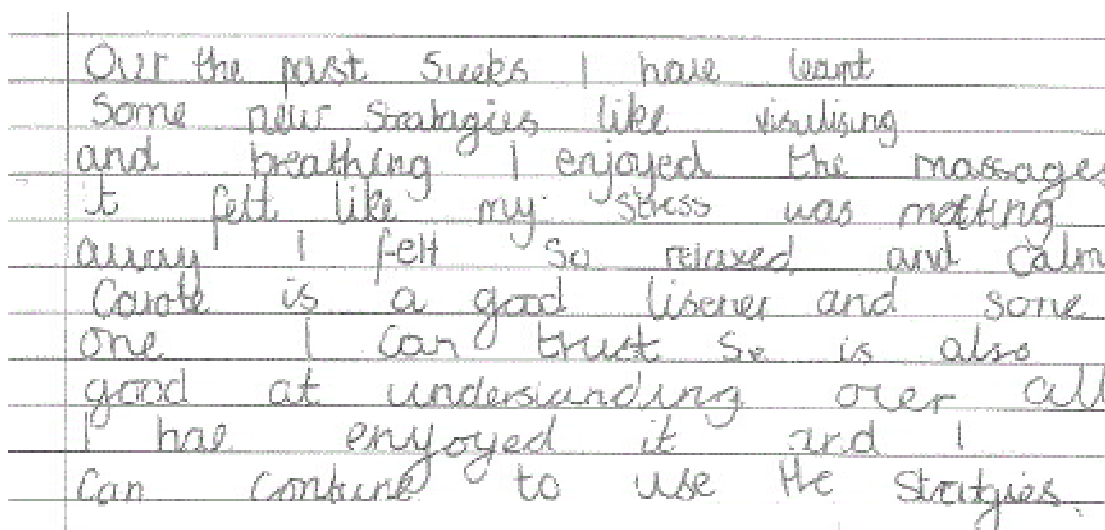 Over the past 5 weeks I have learnt
some new stratagies like visulising
and breathing I enjoyed the massages
it felt like my stress was meltting
away I felt so relaxed and calm
Carole is a good lisener and some
one I can trust se is also
good at undersianding over all
I hae enyoyed it and I
can contune to use the stratgies.